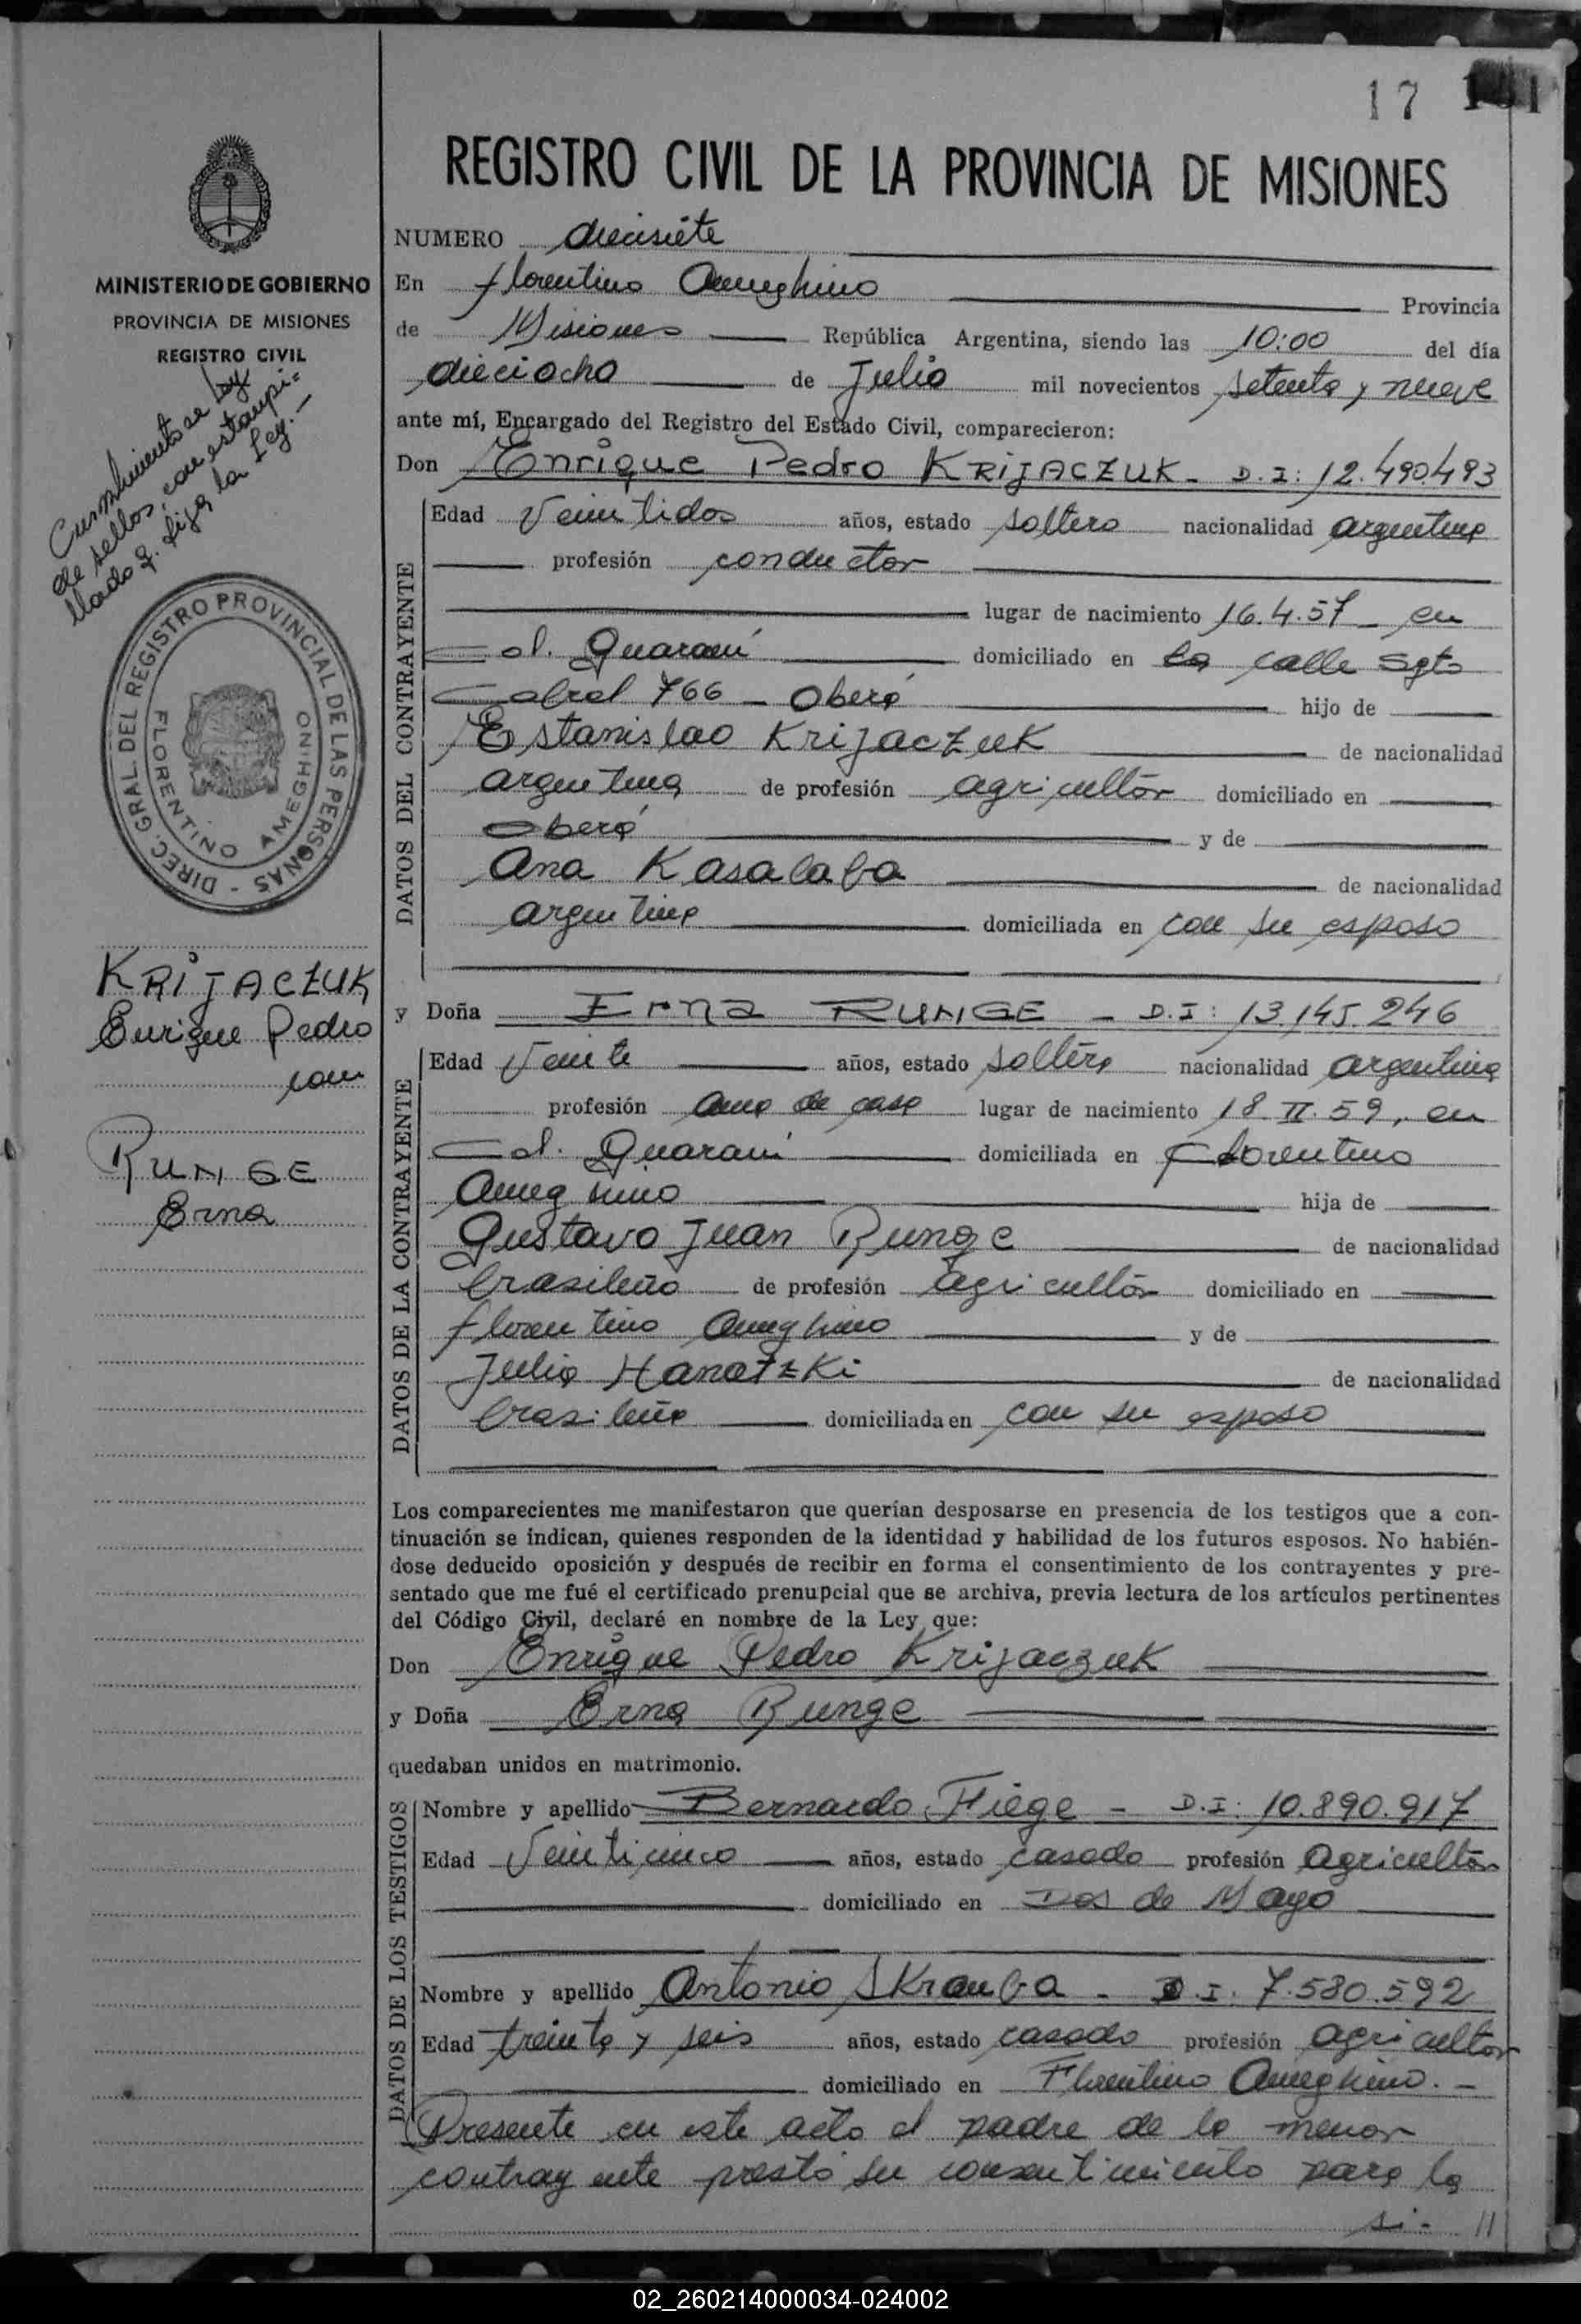 17
REGISTRO CIVIL DE LA PROVINCIA DE MISIONES
MINISTERIO DE GOBIERNO
PROVINCIA DE MISIONES
REGISTRO CIVIL
Cumplimiento de Ley
de sellos, con estampi=
llado q. fija la Ley.-
DIREC. GRAL. DEL REGISTRO PROVINCIAL DE LAS PERSONAS -
FLORENTINO AMEGHINO
KRIJACZUK
Enrique Pedro
con
RUNGE
Erna
NUMERO diecisiete
En florentino Ameghino Provincia
de Misiones República Argentina, siendo las 10:00 del día
dieciocho de Julio mil novecientos setenta y nueve
ante mí, Encargado del Registro del Estado Civil, comparecieron:
Don Enrique Pedro KRIJACZUK - D.I: 12.490.493
DATOS DEL CONTRAYENTE
Edad Veintidos años, estado soltero nacionalidad argentina
profesión conductor
lugar de nacimiento 16.4.57 - en
Col. Guaraní domiciliado en la calle Sgto
Cabral 766 - Oberá hijo de
Estanislao Krijaczuk de nacionalidad
argentina de profesión agricultor domiciliado en
Oberá y de
Ana Kasalaba de nacionalidad
argentina domiciliada en con su esposo
y Doña Erna RUNGE - D.I: 13.145.246
DATOS DE LA CONTRAYENTE
Edad Veinte años, estado soltera nacionalidad argentina
profesión ama de casa lugar de nacimiento 18 II. 59, en
Col. Guaraní domiciliada en Florentino
Ameghino hija de
Gustavo Juan Runge de nacionalidad
brasileño de profesión agricultor domiciliado en
florentino Ameghino y de
Julia Hanatzki de nacionalidad
brasileña domiciliada en con su esposo
Los comparecientes me manifestaron que querían desposarse en presencia de los testigos que a con-
tinuación se indican, quienes responden de la identidad y habilidad de los futuros esposos. No habién-
dose deducido oposición y después de recibir en forma el consentimiento de los contrayentes y pre-
sentado que me fué el certificado prenupcial que se archiva, previa lectura de los artículos pertinentes
del Código Civil, declaré en nombre de la Ley que:
Don Enrique Pedro Krijaczuk
y Doña Erna Runge
quedaban unidos en matrimonio.
DATOS DE LOS TESTIGOS
Nombre y apellido Bernardo Fiege - D.I: 10.890.917
Edad Veinticinco años, estado casado profesión Agricultor
domiciliado en Dos de Mayo
Nombre y apellido Antonio Skrauba - D.I. 7.580.592
Edad treinta y seis años, estado casado profesión agricultor
domiciliado en Florentino Ameghino. -
Presente en este acto el padre de la menor
contrayente prestó su consentimiento para la
si- //
02_260214000034-024002